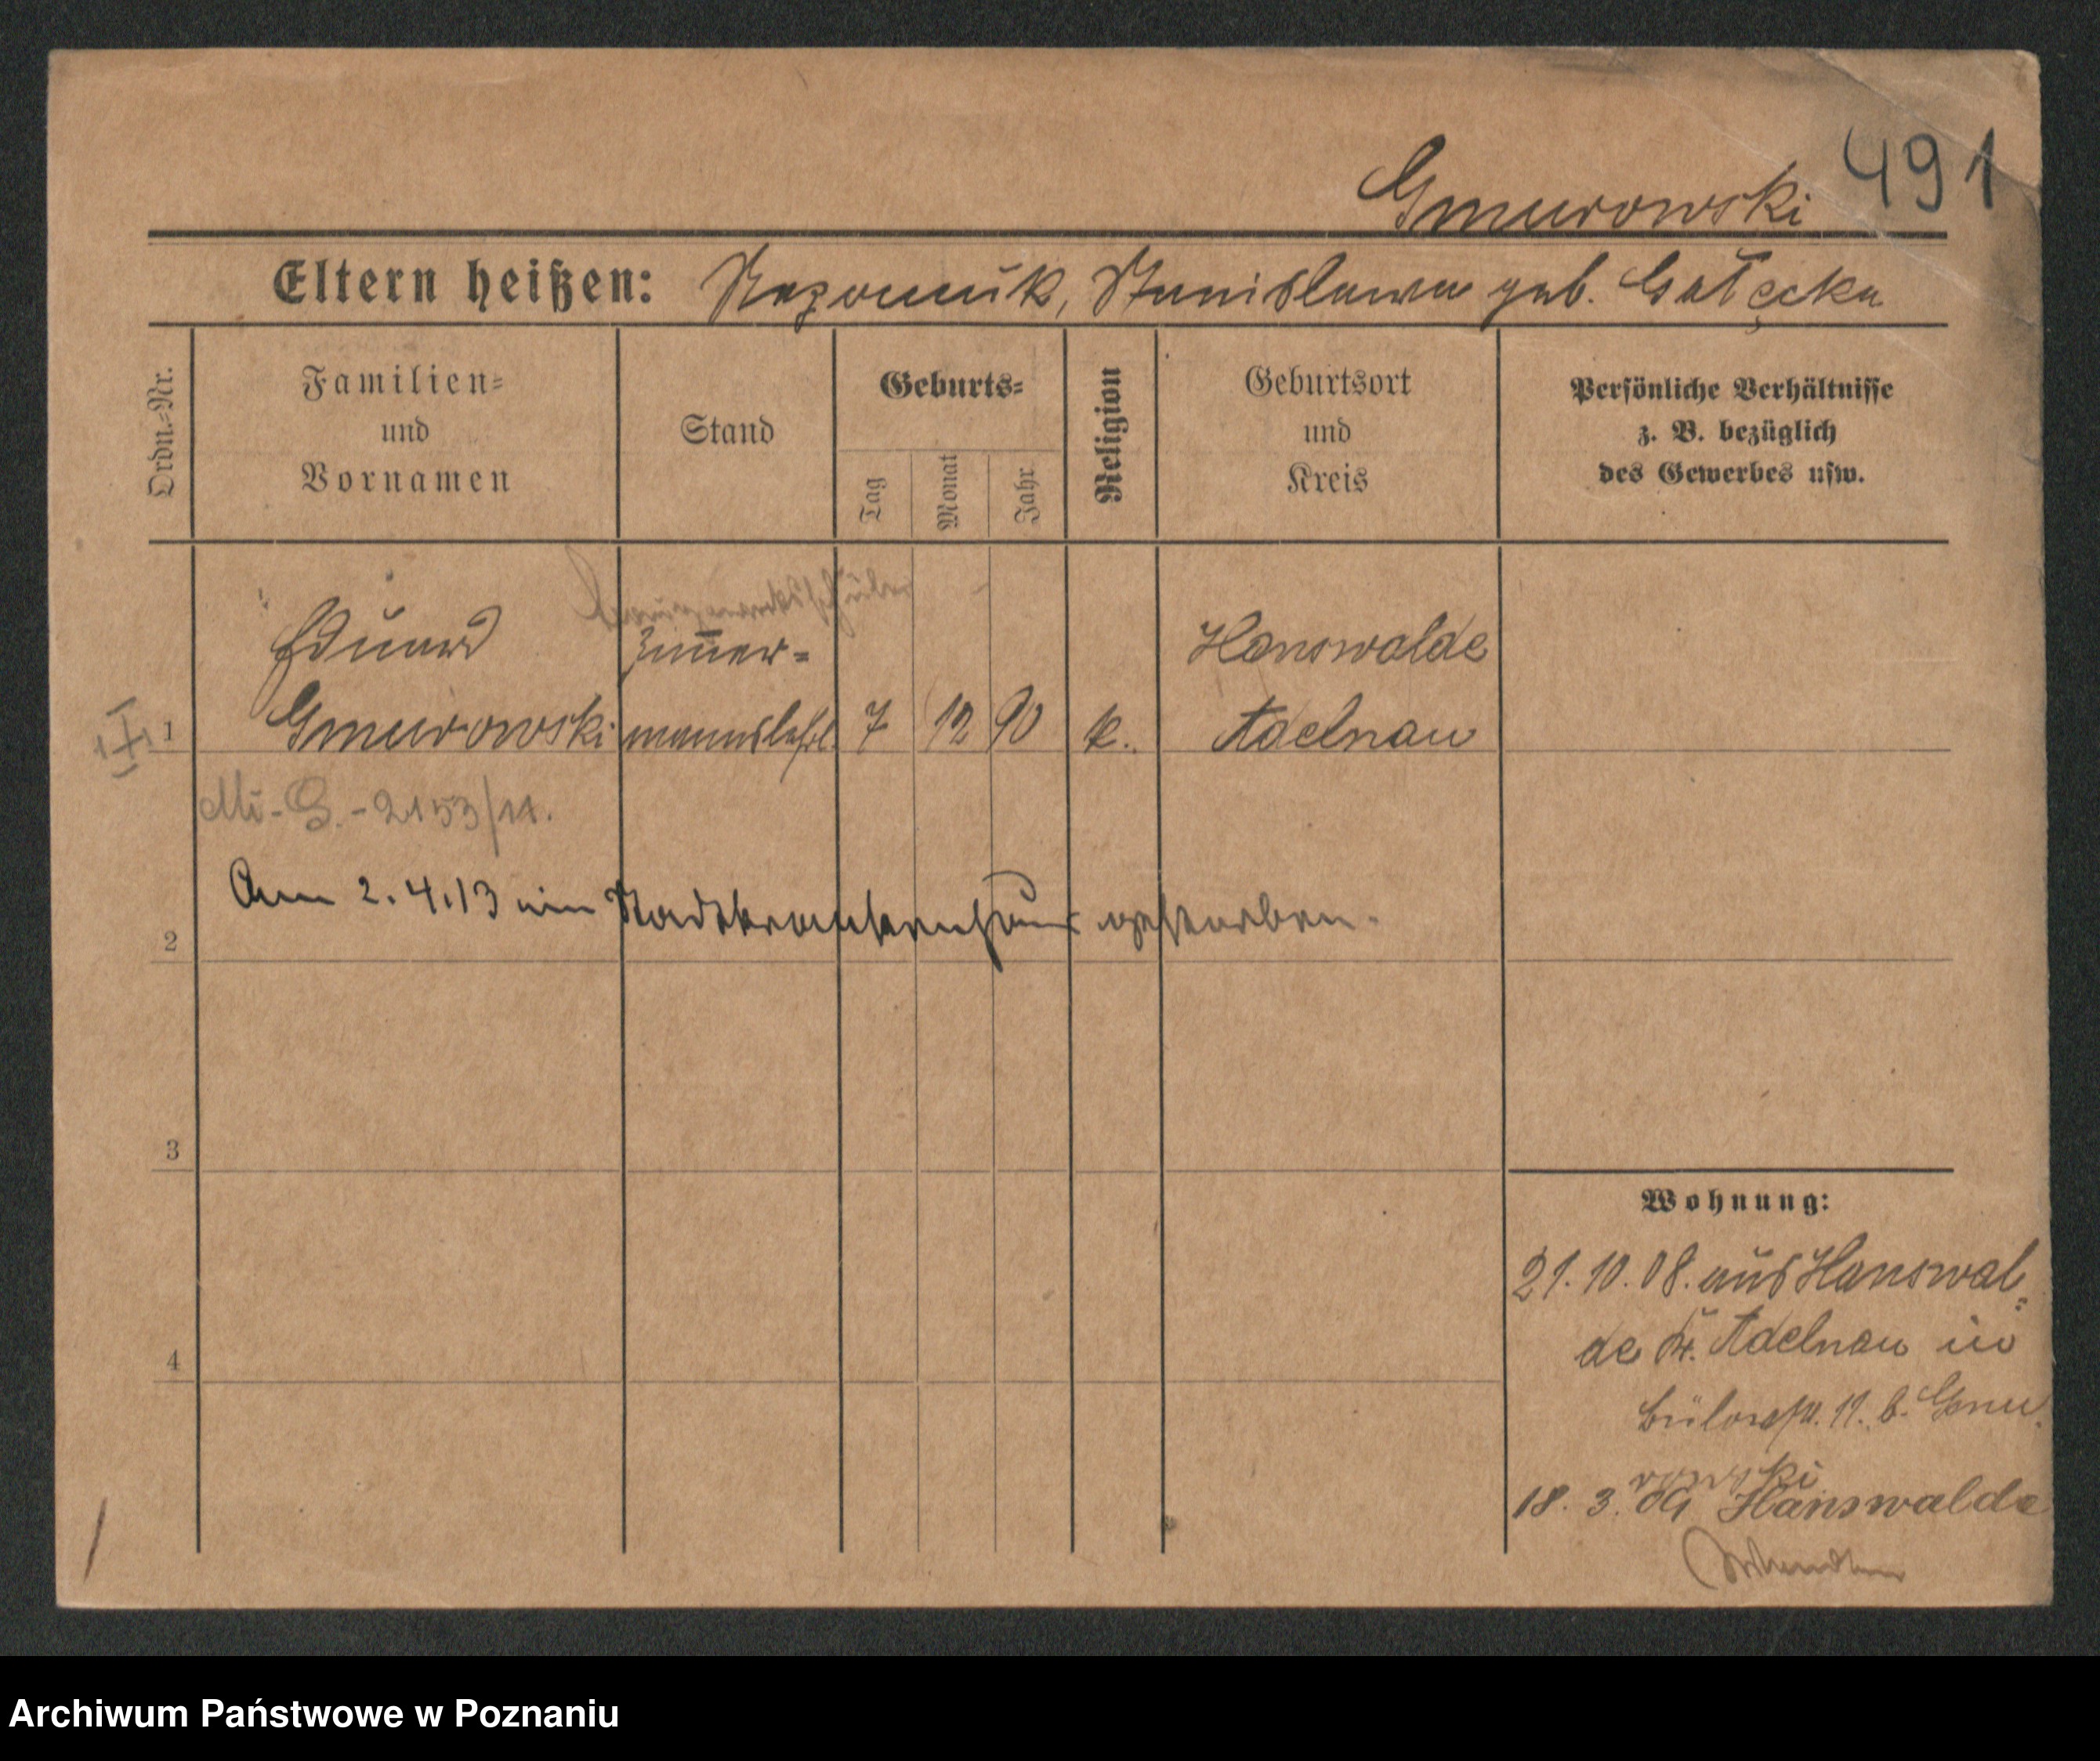 491
Gmurowski
Eltern heißen: Nepomuk, Stanislawa geb. Gałęcka
Ordn.-Nr.
Familien-
und
Vornamen
Stand
Geburts-
Tag
Monat
Jahr
Religion
Geburtsort
und
Kreis
Persönliche Verhältnisse
z. B. bezüglich
des Gewerbes usw.
Baugewerksschüler
Eduard Zimmer- Hanswalde
1 Gmurowski mannslehrl. 7 12 90 k. Adelnau
Mi-G.-2153/11.
Am 2.4.13 im Stadtkrankenhaus gestorben.
2
3
4
Wohnung:
21.10.08. aus Hanswal-
de Kr. Adelnau in
Bülowstr. 11. b. Gmu-
rowski
18. 3. 09 Hanswalde
Archiwum Państwowe w Poznaniu